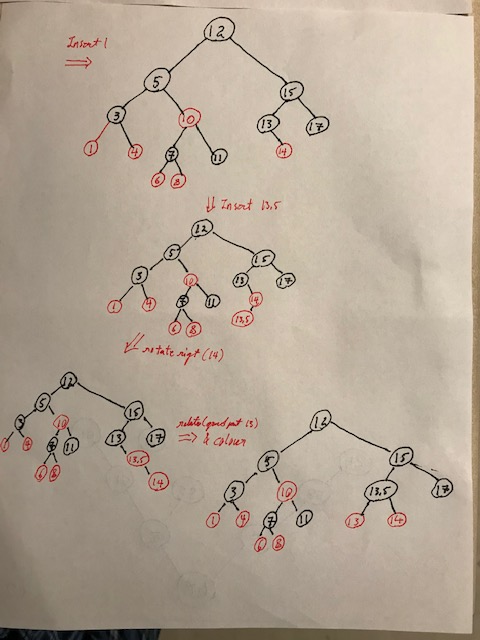 Insert 1
12
5 15
3 10 13 17
1 4 7 11 14
6 8
Insert 13,5
12
5 15
3 10 13 17
1 4 7 11 14
6 8 13,5
rotate rigt (14)
12
5 15
3 10 11 13 17
1 4 7 13,5
6 8 14
rotate (grand part 13)
& colour
12
5 15
3 10 13,5 17
1 4 7 11 13 14
6 8